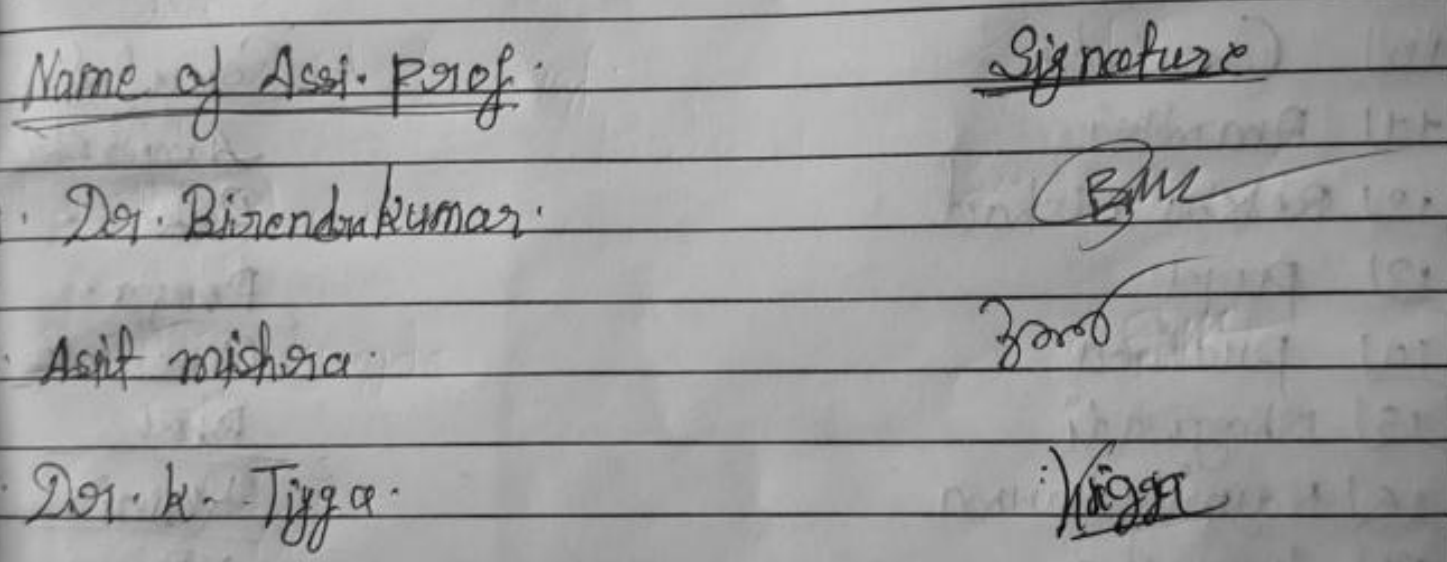 Name of Assi. Prof. Signature
Dr. Birendra Kumar.
Asit mishra.
Dr. K. Tigga. KTigga